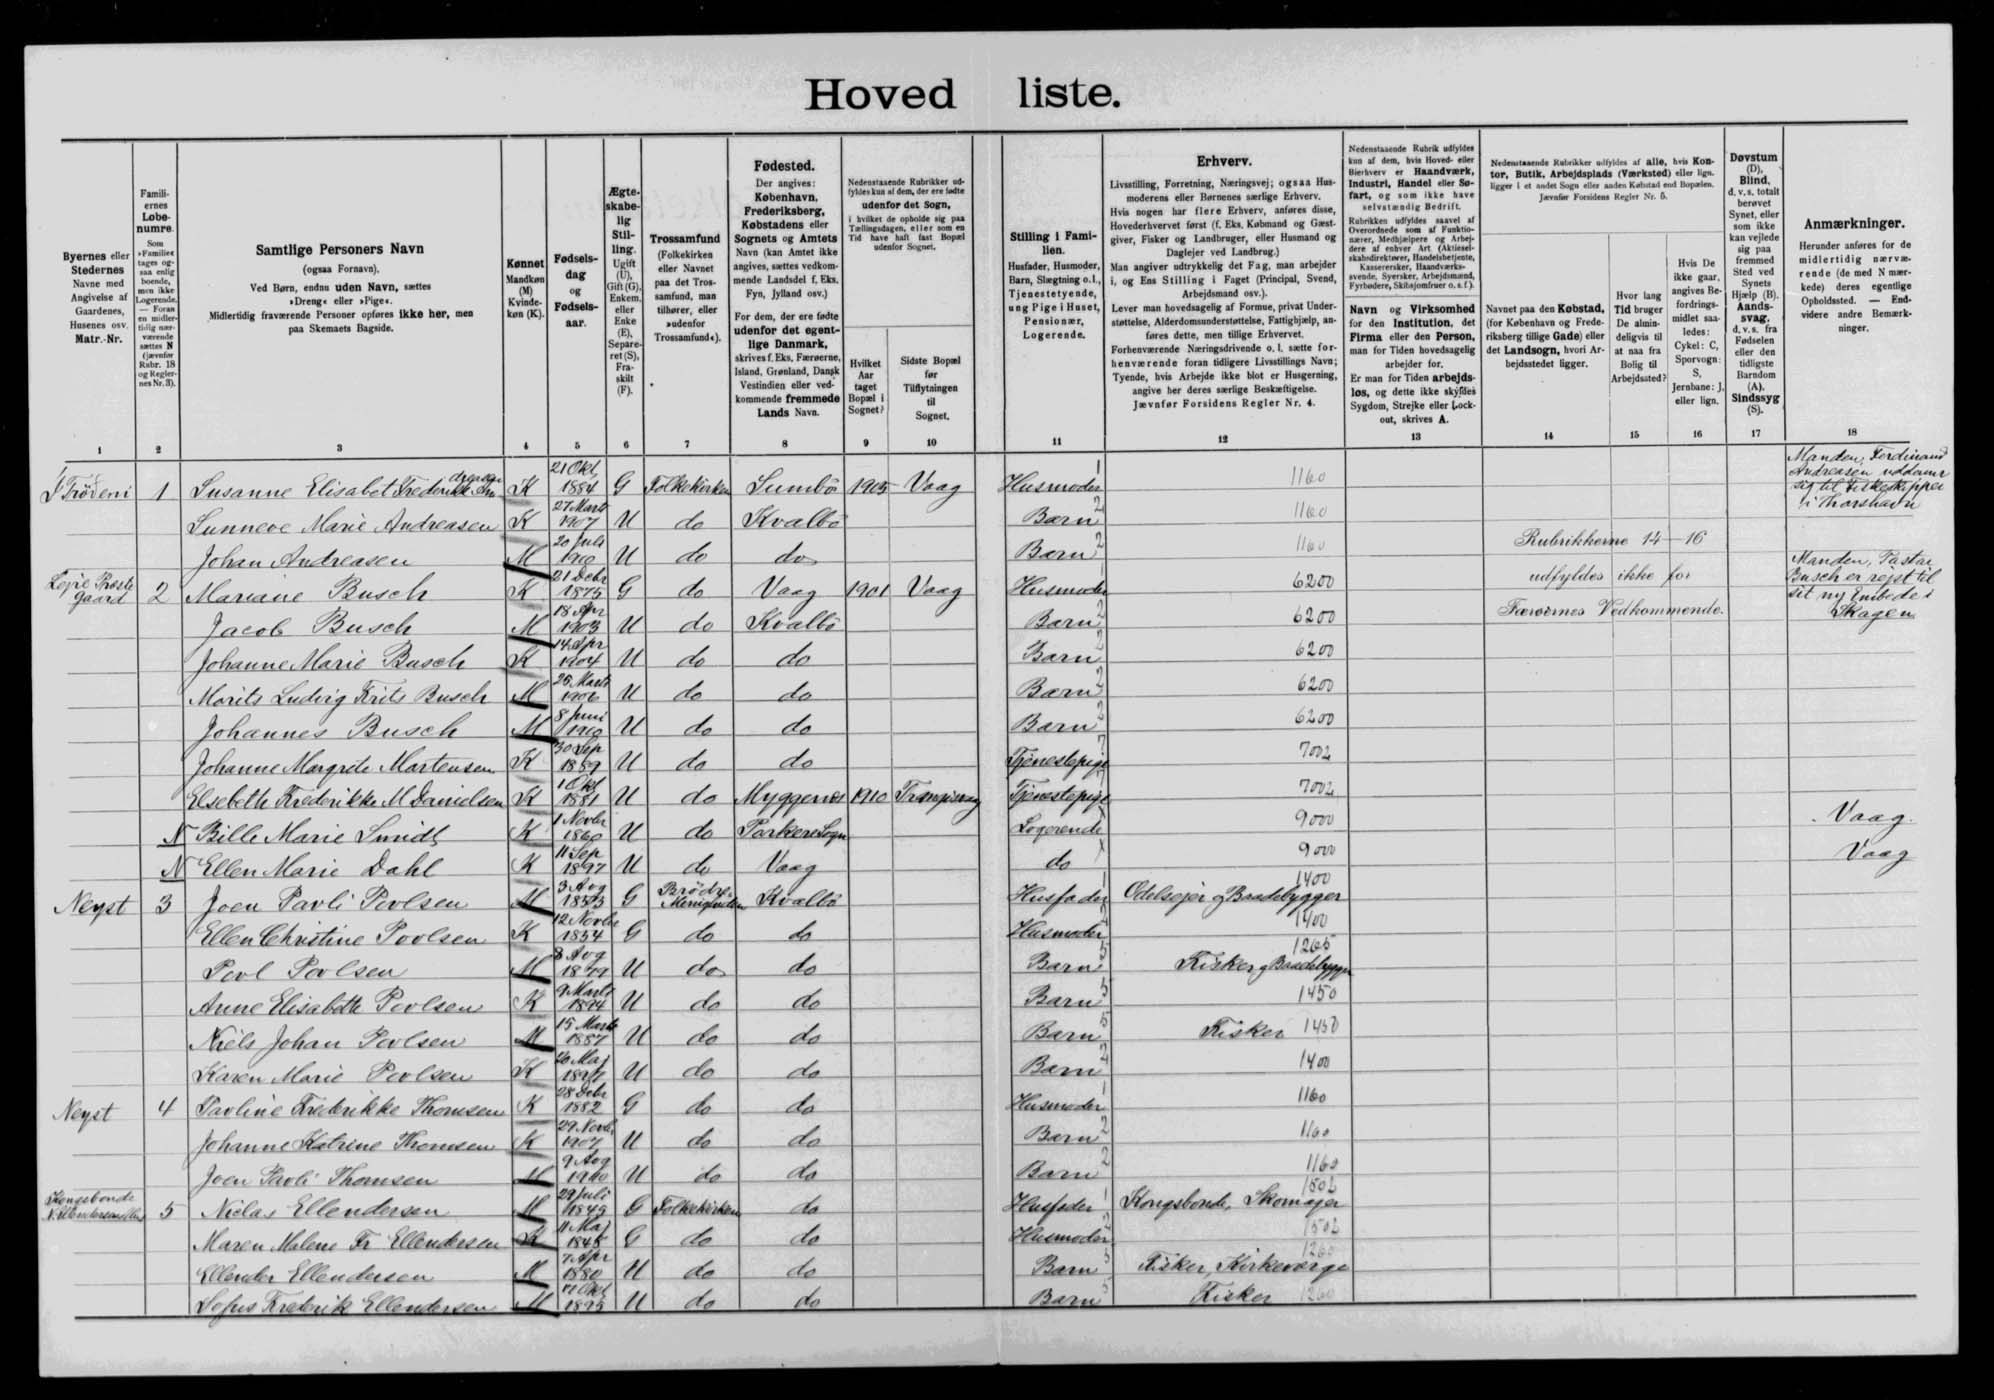 Hoved liste.
Byernes eller
Stedernes
Navne med
Angivelse af
Gaardenes,
Husenes osv.
Matr.-Nr.
Famili-
ernes
Løbe-
numre.
Som
»Familie«
tages og-
saa enlig
boende,
men ikke
Logerende.
— Foran
en midler-
tidig nær-
værende
sættes N
(jævnfør
Rubr. 18
og Regler-
nes Nr. 3).
Samtlige Personers Navn
(ogsaa Fornavn).
Ved Børn, endnu uden Navn, sættes
»Dreng« eller »Pige«.
Midlertidig fraværende Personer opføres ikke her, men
paa Skemaets Bagside.
Kønnet
Mandkøn
(M)
Kvinde-
køn (K).
Fødsels-
dag
og
Fødsels-
aar.
Ægte-
skabe-
lig
Stil-
ling.
Ugift
(U),
Gift (G),
Enkem.
eller
Enke
(E),
Separe-
ret (S),
Fra-
skilt
(F).
Trossamfund
(Folkekirken
eller Navnet
paa det Tros-
samfund, man
tilhører, eller
»udenfor
Trossamfund«).
Fødested.
Der angives:
København,
Frederiksberg,
Købstadens eller
Sognets og Amtets
Navn (kan Amtet ikke
angives, sættes vedkom-
mende Landsdel f. Eks.
Fyn, Jylland osv.)
For dem, der ere fødte
udenfor det egent-
lige Danmark,
skrives f. Eks. Færøerne,
Island, Grønland, Dansk
Vestindien eller ved-
kommende fremmede
Lands Navn.
Nedenstaaende Rubrikker ud-
fyldes kun af dem, der ere fødte
udenfor det Sogn,
i hvilket de opholde sig paa
Tællingsdagen, eller som en
Tid have haft fast Bopæl
udenfor Sognet.
Hvilket
Aar
taget
Bopæl i
Sognet?
Sidste Bopæl
før
Tilflytningen
til
Sognet.
Stilling i Fami-
lien.
Husfader, Husmoder,
Barn, Slægtning o. l.,
Tjenestetyende,
ung Pige i Huset,
Pensionær,
Logerende.
Erhverv.
Livsstilling, Forretning, Næringsvej; ogsaa Hus-
moderens eller Børnenes særlige Erhverv.
Hvis nogen har flere Erhverv, anføres disse,
Hovederhvervet først (f. Eks. Købmand og Gæst-
giver, Fisker og Landbruger, eller Husmand og
Daglejer ved Landbrug.)
Man angiver udtrykkelig det Fag, man arbejder
i, og Ens Stilling i Faget (Principal, Svend,
Arbejdsmand osv.).
Lever man hovedsagelig af Formue, privat Under-
støttelse, Alderdomsunderstøttelse, Fattighjælp, an-
føres dette, men tillige Erhvervet.
Forhenværende Næringsdrivende o. l. sætte for-
henværende foran tidligere Livsstillings Navn;
Tyende, hvis Arbejde ikke blot er Husgerning,
angive her deres særlige Beskæftigelse.
Jævnfør Forsidens Regler Nr. 4.
Nedenstaaende Rubrik udfyldes
kun af dem, hvis Hoved- eller
Bierhverv er Haandværk,
Industri, Handel eller Sø-
fart, og som ikke have
selvstændig Bedrift.
Rubrikken udfyldes saavel af
Overordnede som af Funktio-
nærer, Medhjælpere og Arbej-
dere af enhver Art (Aktiesel-
skabsdirektører, Handelsbetjente,
Kasserersker, Haandværks-
svende, Syersker, Arbejdsmænd,
Fyrbødere, Skibsjomfruer o. s. f.).
Navn og Virksomhed
for den Institution, det
Firma eller den Person,
man for Tiden hovedsagelig
arbejder for.
Er man for Tiden arbejds-
løs, og dette ikke skyldes
Sygdom, Strejke eller Lock-
out, skrives A.
Nedenstaaende Rubrikker udfyldes af alle, hvis Kon-
tor, Butik, Arbejdsplads (Værksted) eller lign.
ligger i et andet Sogn eller anden Købstad end Bopælen.
Jævnfør Forsidens Regler Nr. 5.
Navnet paa den Købstad,
(for København og Frede-
riksberg tillige Gade) eller
det Landsogn, hvori Ar-
bejdsstedet ligger.
Hvor lang
Tid bruger
De almin-
deligvis til
at naa fra
Bolig til
Arbejdssted?
Hvis De
ikke gaar,
angives Be-
fordrings-
midlet saa-
ledes:
Cykel: C,
Sporvogn:
S,
Jernbane: J,
eller lign.
Døvstum
(D),
Blind,
d. v. s. totalt
berøvet
Synet, eller
som ikke
kan vejlede
sig paa
fremmed
Sted ved
Synets
Hjælp (B).
Aands-
svag,
d. v. s. fra
Fødselen
eller den
tidligste
Barndom
(A).
Sindssyg
(S).
Anmærkninger.
Herunder anføres for de
midlertidig nærvæ-
rende (de med N mær-
kede) deres egentlige
Opholdssted. — End-
videre andre Bemærk-
ninger.
1 2 3 4 5 6 7 8 9 10 11 12 13 14 15 16 17 18
I Trødeni 1 Susanne Elisabet Frederikke Andreasen K 21 Okt 1884 G Folkekirken Sumbø 1905 Vaag Husmoder 1 1160 Manden, Ferdinand Andreasen uddanner sig til Fiskeskipper i Thorshavn
Sunneve Marie Andreasen K 27 Marts 1907 U do Kvalbø Barn 2 1160
Johan Andreasen M 20 Juli 1910 U do do Barn 2 1160 Rubrikkerne 14-16
Lejie Præste gaard 2 Mariane Busch K 21 Debr 1875 G do Vaag 1901 Vaag Husmoder 1 6200 udfyldes ikke for Manden, Pastor Busch er rejst til sit ny Embede i Skagen
Jacob Busch M 18 Apr 1903 U do Kvalbø Barn 2 6200 Færøernes Vedkommende.
Johanne Marie Busch K 14 Apr 1904 U do do Barn 2 6200
Morits Ludvig Frits Busch M 25 Marts 1906 U do do Barn 2 6200
Johannes Busch M 8 Juni 1910 U do do Barn 2 6200
Johanne Margrete Mortensen K 30 Sep 1889 U do do Tjenestepige 7 7002
Elsebeth Frederikke M Danielsen K 1 Okt 1881 U do Myggenes 1910 Trangisvaag Tjenestepige 7 7002
N Bille Marie Smidt K 1 Novbr 1860 U do Porkere Sogn Logerende 9000 Vaag.
N Ellen Marie Dahl K 11 Sep 1897 U do Vaag do 9000 Vaag
Neyst 3 Joen Pavli Povlsen M 3 Aug 1853 G Brødre Menigheden Kvalbø Husfader 1 1400 Odelsejer og Baadebygger
Ellen Christine Povlsen K 12 Novbr 1854 G do do Husmoder 2 1400
Povl Povlsen M 8 Aug 1879 U do do Barn 5 1265 Fisker og Baadebygger
Anne Elisabeth Povlsen K 9 Marts 1894 U do do Barn 5 1450
Niels Johan Povlsen M 15 Marts 1887 U do do Barn 5 Fisker 1450
Karen Marie Povlsen K 26 Maj 1897 U do do Barn 2 1400
Neyst 4 Pavline Frederikke Thomsen K 28 Debr 1882 G do do Husmoder 1 1160
Johanne Katrine Thomsen K 29 Novb 1907 U do do Barn 2 1160
Joen Pavli Thomsen M 9 Aug 1910 U do do Barn 2 1160
Kongsbonde N. Ellendersens Hus 5 Niclas Ellendersen M 29 Juli 1849 G Folkekirken do Husfader 1 1502 Kongsbonde, Skomager
Maren Malene Fr Ellendersen K 11 Maj 1845 G do do Husmoder 2 1502
Ellender Ellendersen M 7 Apr 1880 U do do Barn 5 1260 Fisker, Kirkeværge
Sofus Frederik Ellendersen M 17 Okt 1895 U do do Barn 5 Fisker 1260